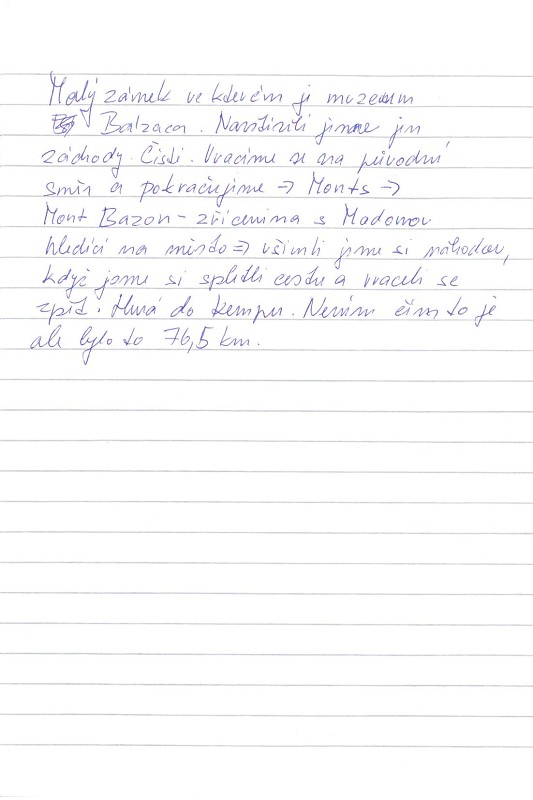 Malý zámek ve kterém je muzeum
Balzaca. Navštívili jsme jen
záchody. Čisté. Vracíme se na původní
směr a pokračujeme → Monts →
Mont Bazon - zřícenina s Madonou
hledící na město ⇒ všimli jsme si náhodou,
když jsme si spletli cestu a vraceli se
zpět. Hurá do kempu. Nevím čím to je
ale bylo to 76,5 km.